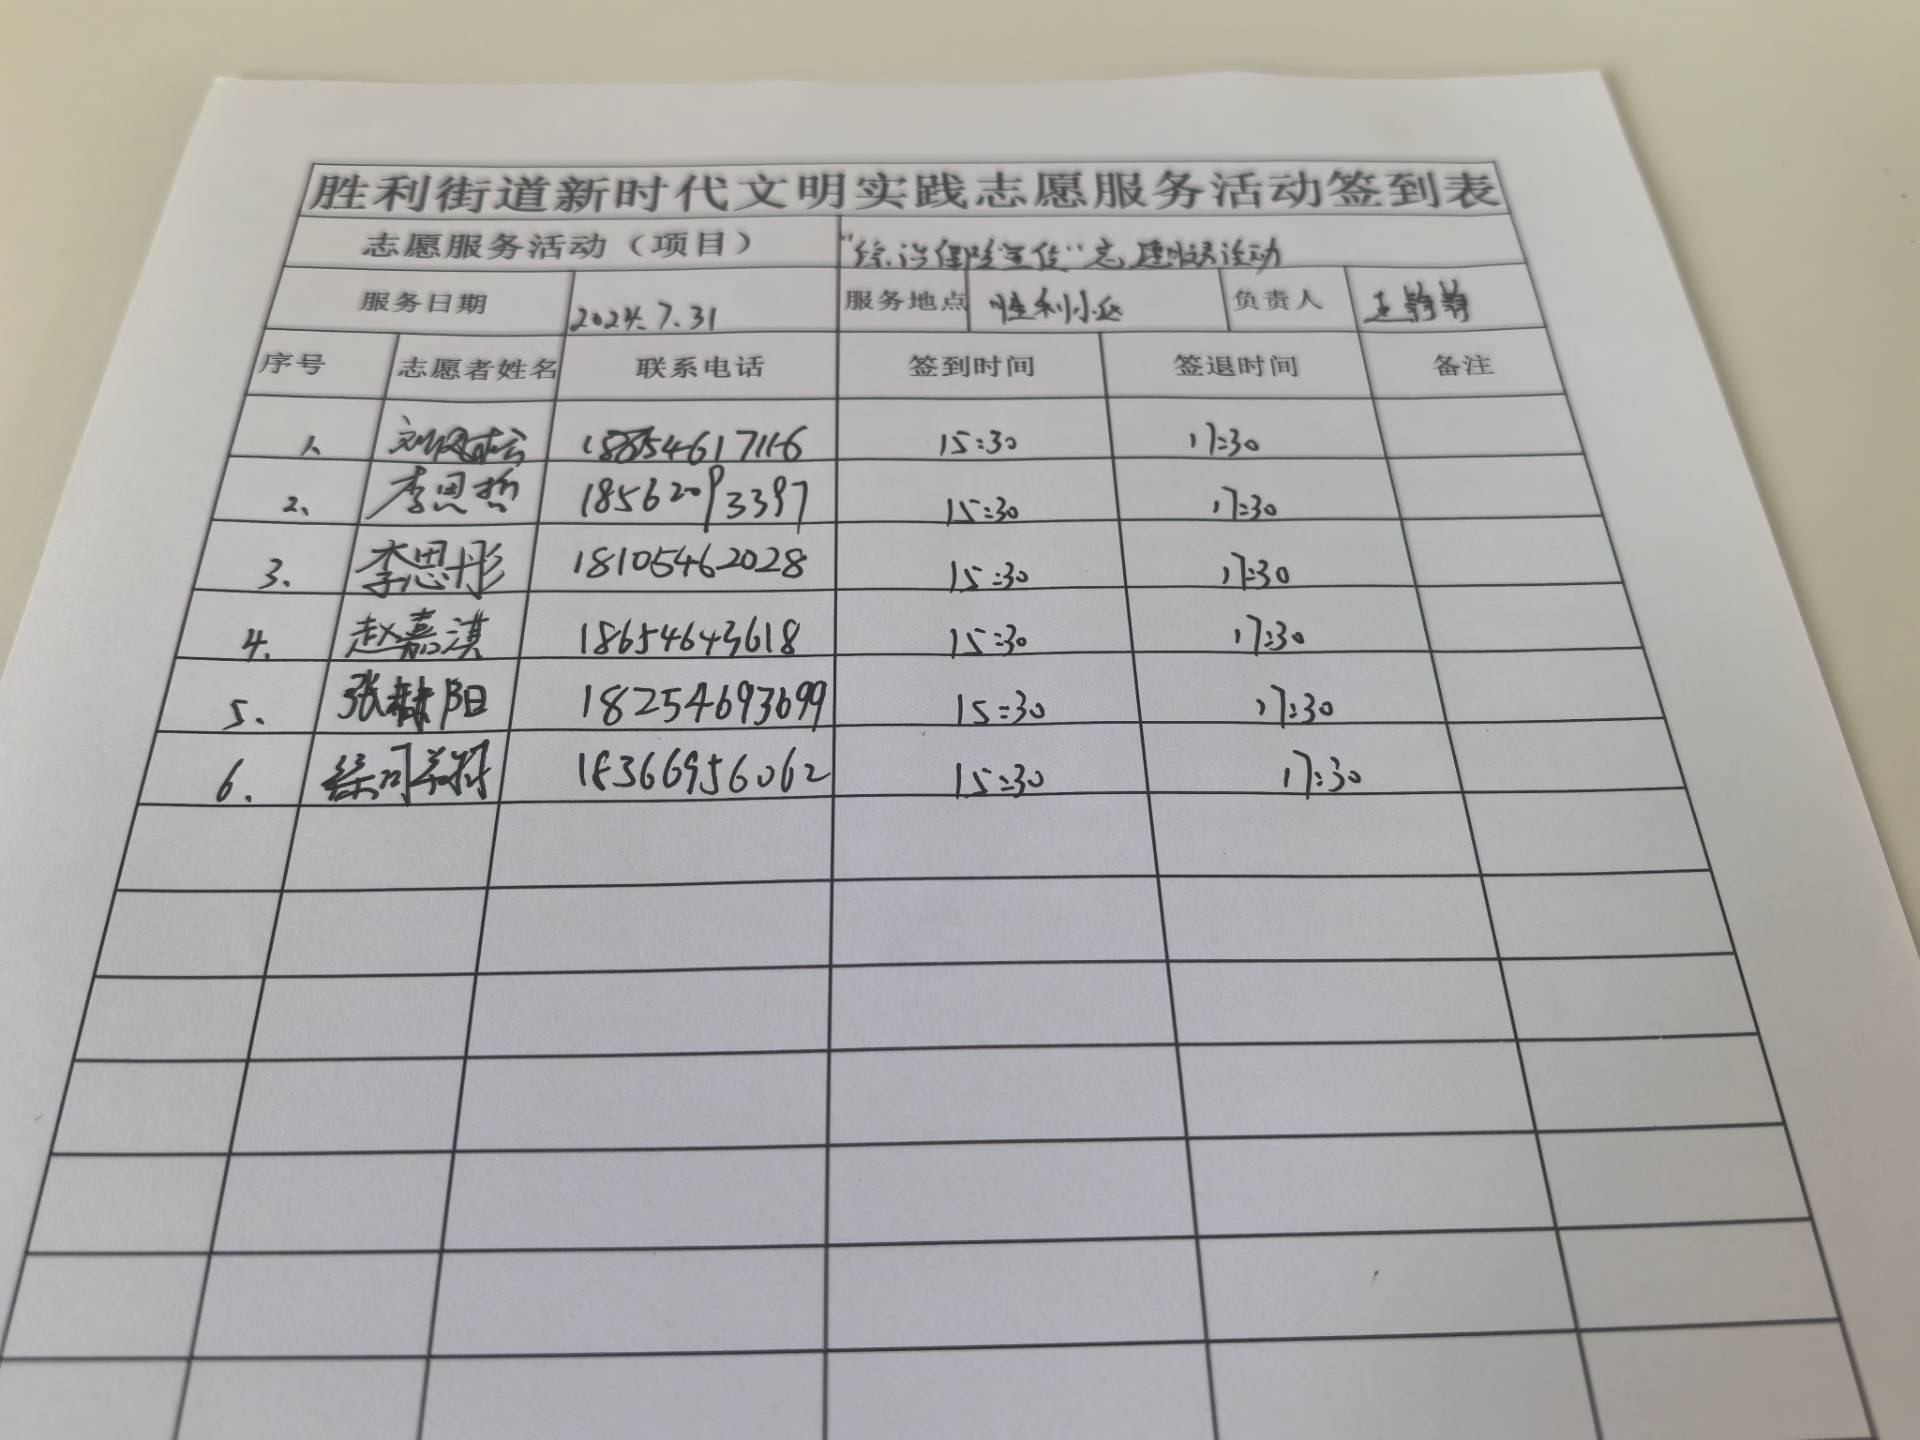 胜利街道新时代文明实践志愿服务活动签到表
志愿服务活动（项目） 志愿服务活动
服务日期 2024.7.31 服务地点 胜利小区 负责人 王静静
序号 志愿者姓名 联系电话 签到时间 签退时间 备注
1、 15:30 17:30
2、 李思哲 18562093397 15:30 17:30
3、 李思彤 18105462028 15:30 17:30
4. 赵嘉淇 18654643618 15:30 17:30
5. 张 阳 18254693699 15:30 17:30
6. 18366956062 15:30 17:30